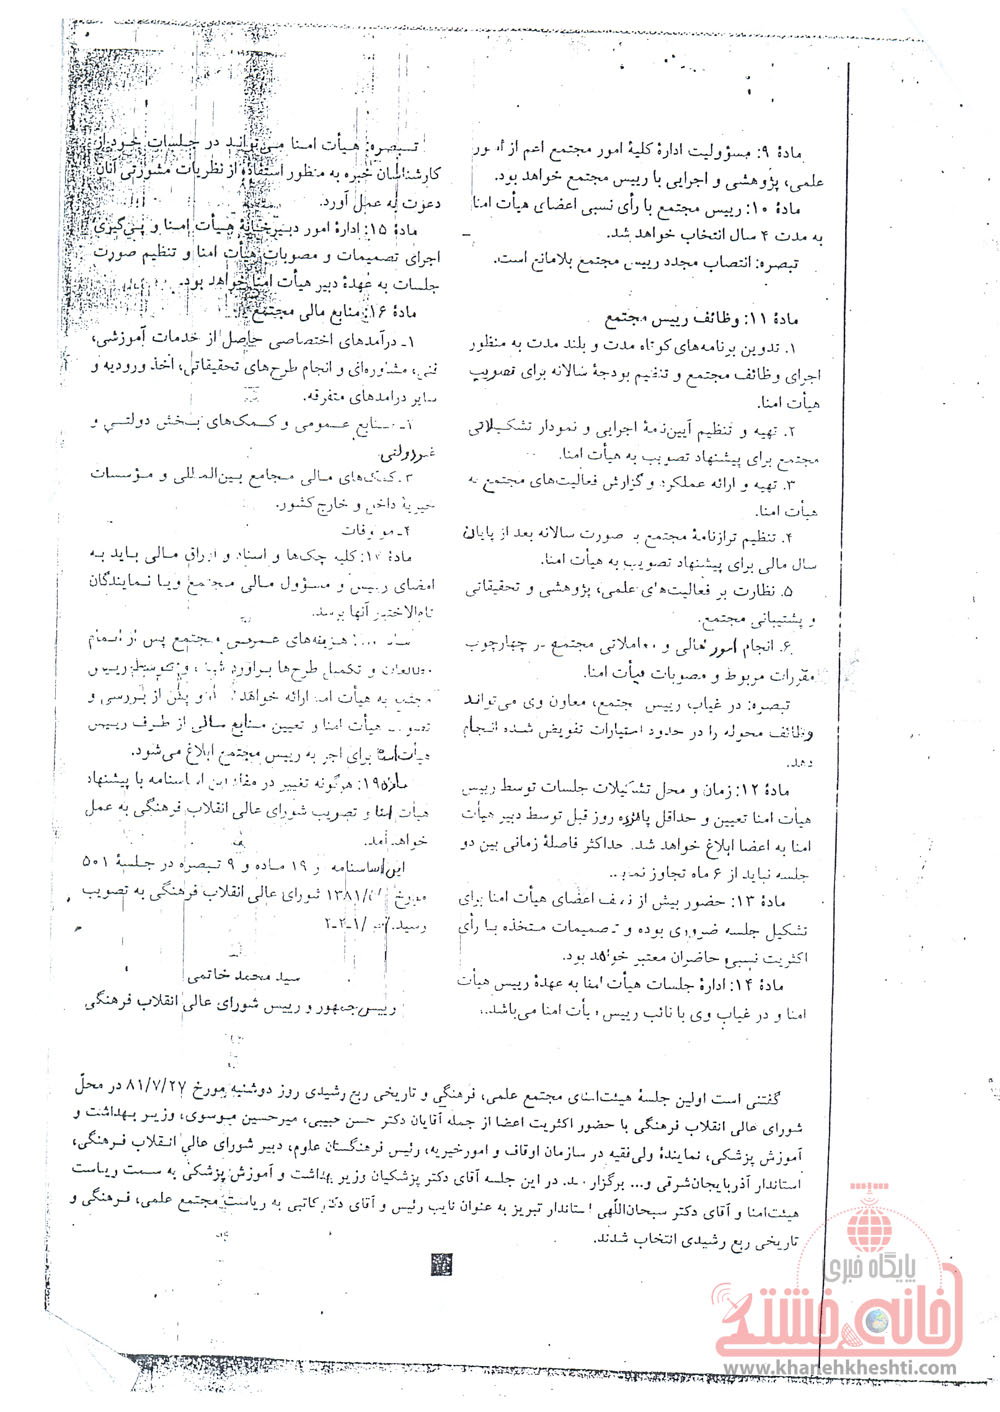 مادهٔ ۹: مسؤولیت ادارهٔ کلیهٔ امور مجتمع اعم از امور
علمی، پژوهشی و اجرایی با رییس مجتمع خواهد بود.
مادهٔ ۱۰: رییس مجتمع با رأی نسبی اعضای هیأت امنا
به مدت ۴ سال انتخاب خواهد شد.
تبصره: انتصاب مجدد رییس مجتمع بلامانع است.
مادهٔ ۱۱: وظائف رییس مجتمع
۱. تدوین برنامه‌های کوتاه مدت و بلند مدت به منظور
اجرای وظائف مجتمع و تنظیم بودجهٔ سالانه برای تصویب
هیأت امنا.
۲. تهیه و تنظیم آیین‌نامهٔ اجرایی و نمودار تشکیلاتی
مجتمع برای پیشنهاد تصویب به هیأت امنا.
۳. تهیه و ارائه عملکرد و گزارش فعالیت‌های مجتمع به
هیأت امنا.
۴. تنظیم ترازنامهٔ مجتمع به صورت سالانه بعد از پایان
سال مالی برای پیشنهاد تصویب به هیأت امنا.
۵. نظارت بر فعالیت‌های علمی، پژوهشی و تحقیقاتی
و پشتیبانی مجتمع.
۶. انجام امور مالی و معاملاتی مجتمع در چهارچوب
مقررات مربوط و مصوبات هیأت امنا.
تبصره: در غیاب رییس مجتمع، معاون وی می‌تواند
وظائف محوله را در حدود اختیارات تفویض شده انجام
دهد.
مادهٔ ۱۲: زمان و محل تشکیلات جلسات توسط رییس
هیأت امنا تعیین و حداقل پانزده روز قبل توسط دبیر هیأت
امنا به اعضا ابلاغ خواهد شد. حداکثر فاصلهٔ زمانی بین دو
جلسه نباید از ۶ ماه تجاوز نماید.
مادهٔ ۱۳: حضور بیش از نصف اعضای هیأت امنا برای
تشکیل جلسه ضروری بوده و تصمیمات متخذه با رأی
اکثریت نسبی حاضران معتبر خواهد بود.
مادهٔ ۱۴: ادارهٔ جلسات هیأت امنا به عهدهٔ رییس هیأت
امنا و در غیاب وی با نائب رییس هیأت امنا می‌باشد.
تبصره: هیأت امنا می‌تواند در جلسات خود از
کارشناسان خبره به منظور استفاده از نظریات مشورتی آنان
دعوت به عمل آورد.
مادهٔ ۱۵: ادارهٔ امور دبیرخانهٔ هیأت امنا و پی‌گیری
اجرای تصمیمات و مصوبات هیأت امنا و تنظیم صورت
جلسات به عهدهٔ دبیر هیأت امنا خواهد بود.
مادهٔ ۱۶: منابع مالی مجتمع
۱ـ درآمدهای اختصاصی حاصل از خدمات آموزشی،
فنی، مشاوره‌ای و انجام طرح‌های تحقیقاتی، اخذ ورودیه و
سایر درامدهای متفرقه.
منابع عمومی و کمک‌های بخش دولتی و
غیردولتی
۳ـ کمک‌های مالی مجامع بین‌المللی و مؤسسات
خیریهٔ داخل و خارج کشور.
۴ـ موقوفات
مادهٔ ۱۷: کلیه چک‌ها و اسناد و اوراق مالی باید به
امضای رییس و مسؤول مالی مجتمع و یا نمایندگان
تام‌الاختیار آنها برسد.
هزینه‌های عمومی مجتمع پس از اتمام
مطالعات و تکمیل طرح‌ها براورد شده و توسط رییس
مجتمع به هیأت امنا ارائه خواهد شد و پس از بررسی و
تصویب هیأت امنا و تعیین منابع مالی از طرف رییس
هیأت امنا برای اجرا به رییس مجتمع ابلاغ می‌شود.
ماده ۱۹: هرگونه تغییر در مفاد این اساسنامه با پیشنهاد
هیأت امنا و تصویب شورای عالی انقلاب فرهنگی به عمل
خواهد آمد.
این اساسنامه در ۱۹ ماده و ۹ تبصره در جلسهٔ ۵۰۱
مورخ ۱۳۸۱ شورای عالی انقلاب فرهنگی به تصویب
رسید.
سید محمد خاتمی
رییس جمهور و رییس شورای عالی انقلاب فرهنگی
گفتنی است اولین جلسهٔ هیئت‌امنای مجتمع علمی، فرهنگی و تاریخی ربع رشیدی روز دوشنبه مورخ ۸۱/۷/۲۷ در محلّ
شورای عالی انقلاب فرهنگی با حضور اکثریت اعضا از جمله آقایان دکتر حسن حبیبی، میرحسین موسوی، وزیر بهداشت و
آموزش پزشکی، نمایندهٔ ولی‌فقیه در سازمان اوقاف و امورخیریه، رئیس فرهنگستان علوم، دبیر شورای عالی انقلاب فرهنگی،
استاندار آذربایجان‌شرقی و... برگزار شد. در این جلسه آقای دکتر پزشکیان وزیر بهداشت و آموزش پزشکی به سمت ریاست
هیئت‌امنا و آقای دکتر سبحان‌اللّهی استاندار تبریز به عنوان نایب رئیس و آقای دکتر کاتبی به ریاست مجتمع علمی، فرهنگی و
تاریخی ربع رشیدی انتخاب شدند.
پایگاه خبری
خانه خشتی
www.khanehkheshti.com